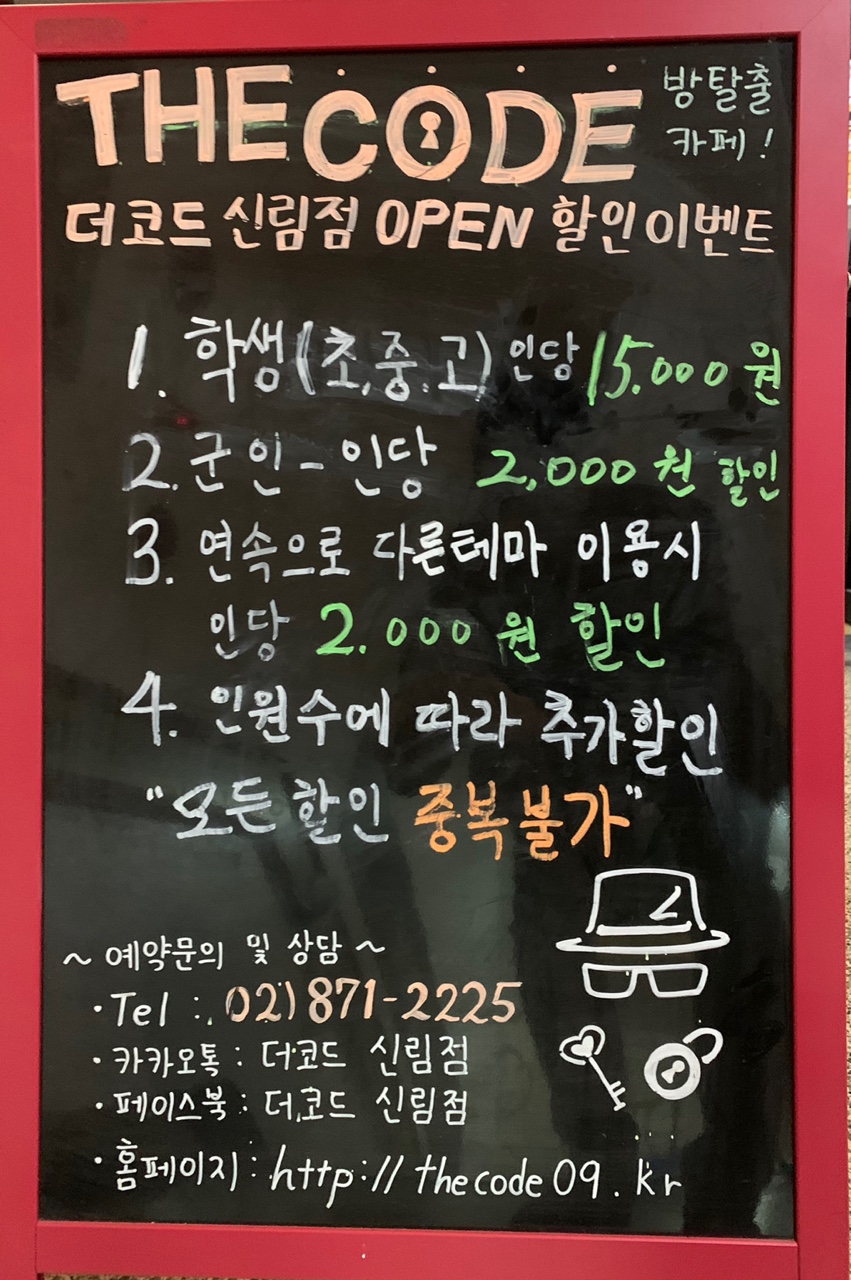 THE CODE 방탈출
카페!
더코드 신림점 OPEN 할인이벤트
1. 학생(초,중.고) 인당 15.000 원
2. 군인 - 인당 2,000 원 할인
3. 연속으로 다른테마 이용시
인당 2.000 원 할인
4. 인원수에 따라 추가할인
"모든 할인 중복불가"
~ 예약문의 및 상담 ~
· Tel : 02) 871-2225
· 카카오톡 : 더코드 신림점
· 페이스북 : 더코드 신림점
· 홈페이지 : http://thecode09.kr